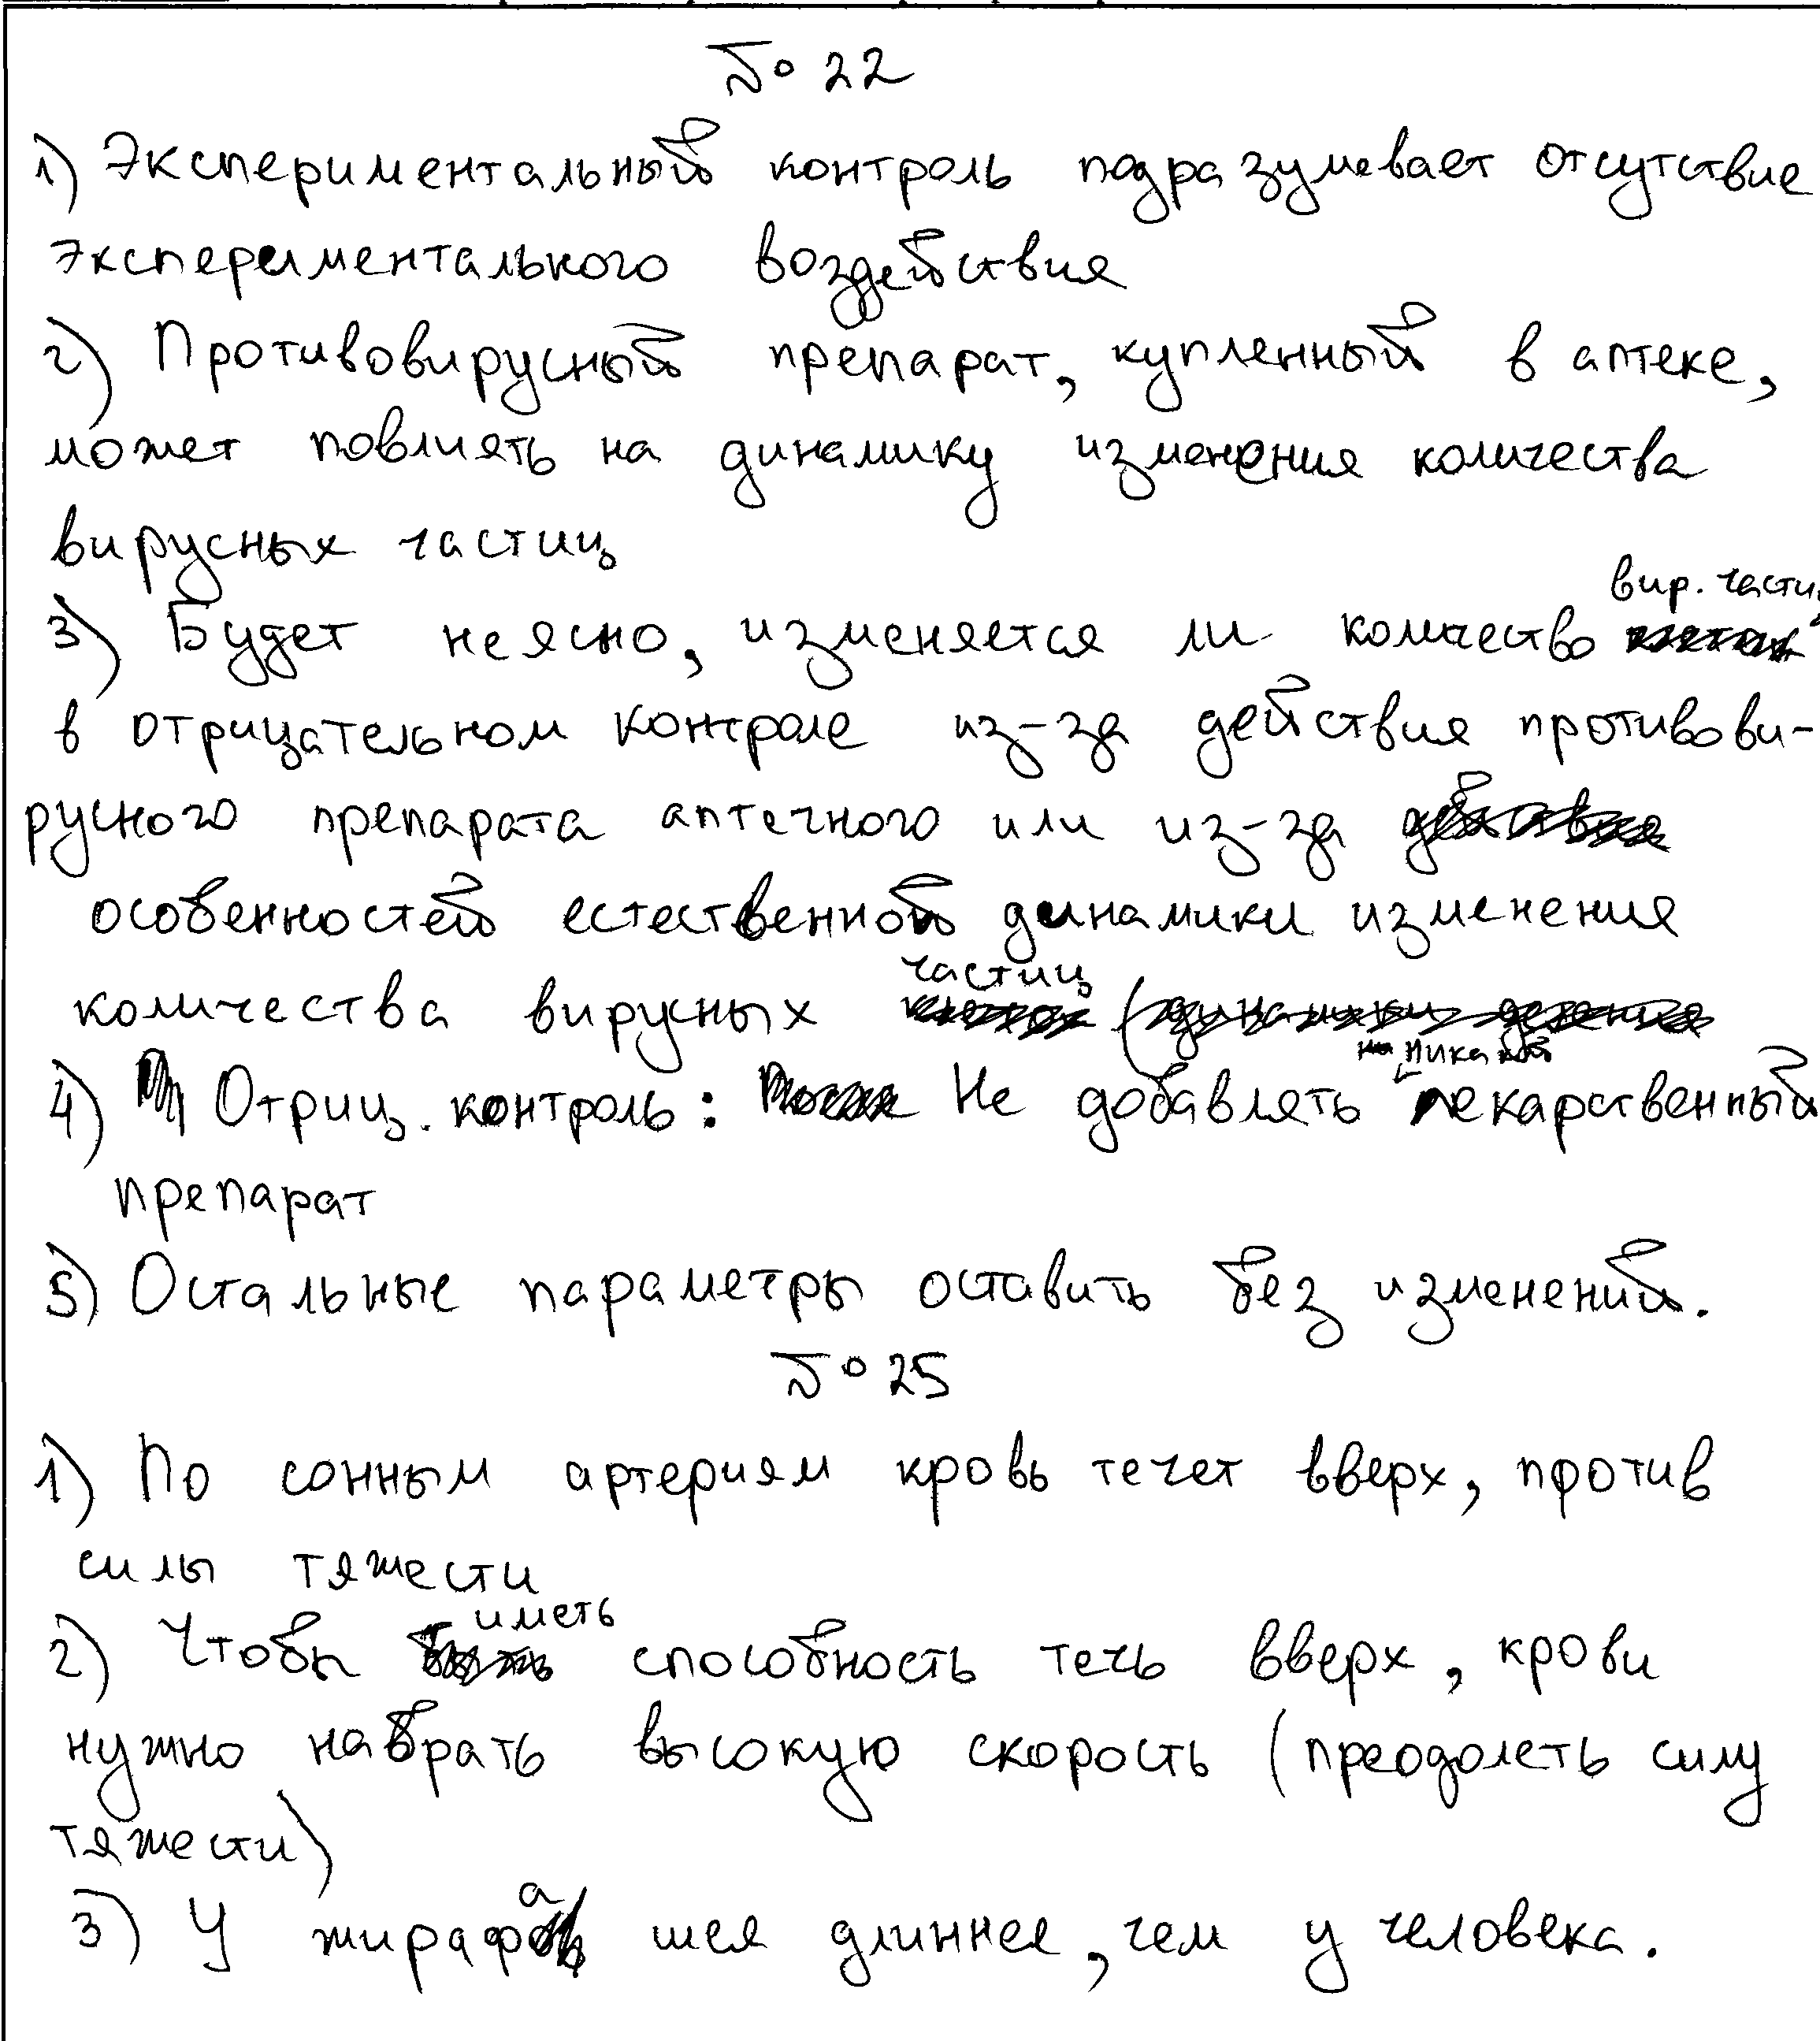 № 22
1) Экспериментальный контроль подразумевает отсутствие
экспериментального воздействия
2) Противовирусный препарат, купленный в аптеке,
может повлиять на динамику изменения количества
вирусных частиц
3) Будет неясно, изменяется ли количество вир. частиц
в отрицательном контроле из-за действия противови-
русного препарата аптечного или из-за
особенностей естественной динамики изменения
количества вирусных частиц
4) Отриц. контроль: Не добавлять никакой лекарственный
препарат
5) Остальные параметры оставить без изменений.
№ 25
1) По сонным артериям кровь течет вверх, против
силы тяжести
2) Чтобы иметь способность течь вверх, крови
нужно набрать высокую скорость (преодолеть силу
тяжести)
3) У жирафа шея длиннее, чем у человека.